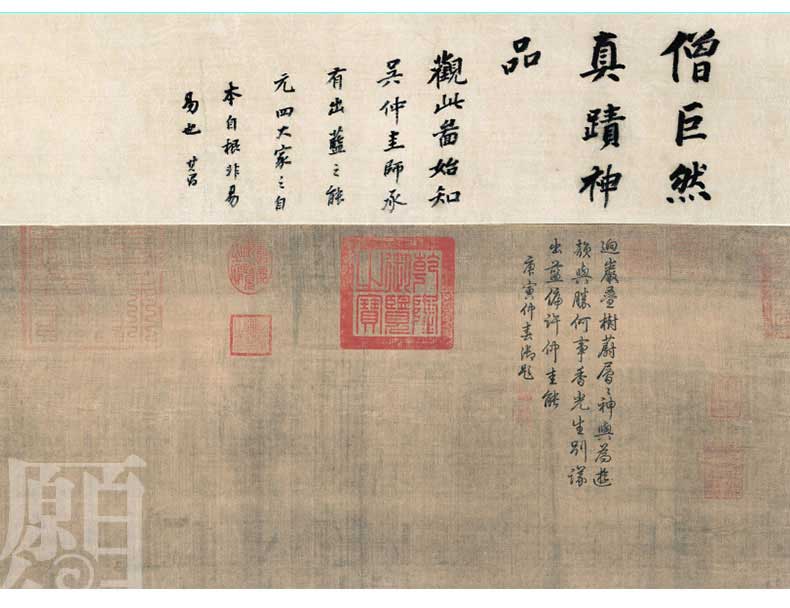 僧巨然
真蹟神
品
觀此啚始知
吳仲圭師承
有出藍之能
元四大家之自
本自根非易
易也 其昌
迴巖疊樹蔚層〻神與為遊
韻與勝何事香光生別議
出藍偏許仲圭能
庚寅仲春御題
乾隆
御覽
之寶